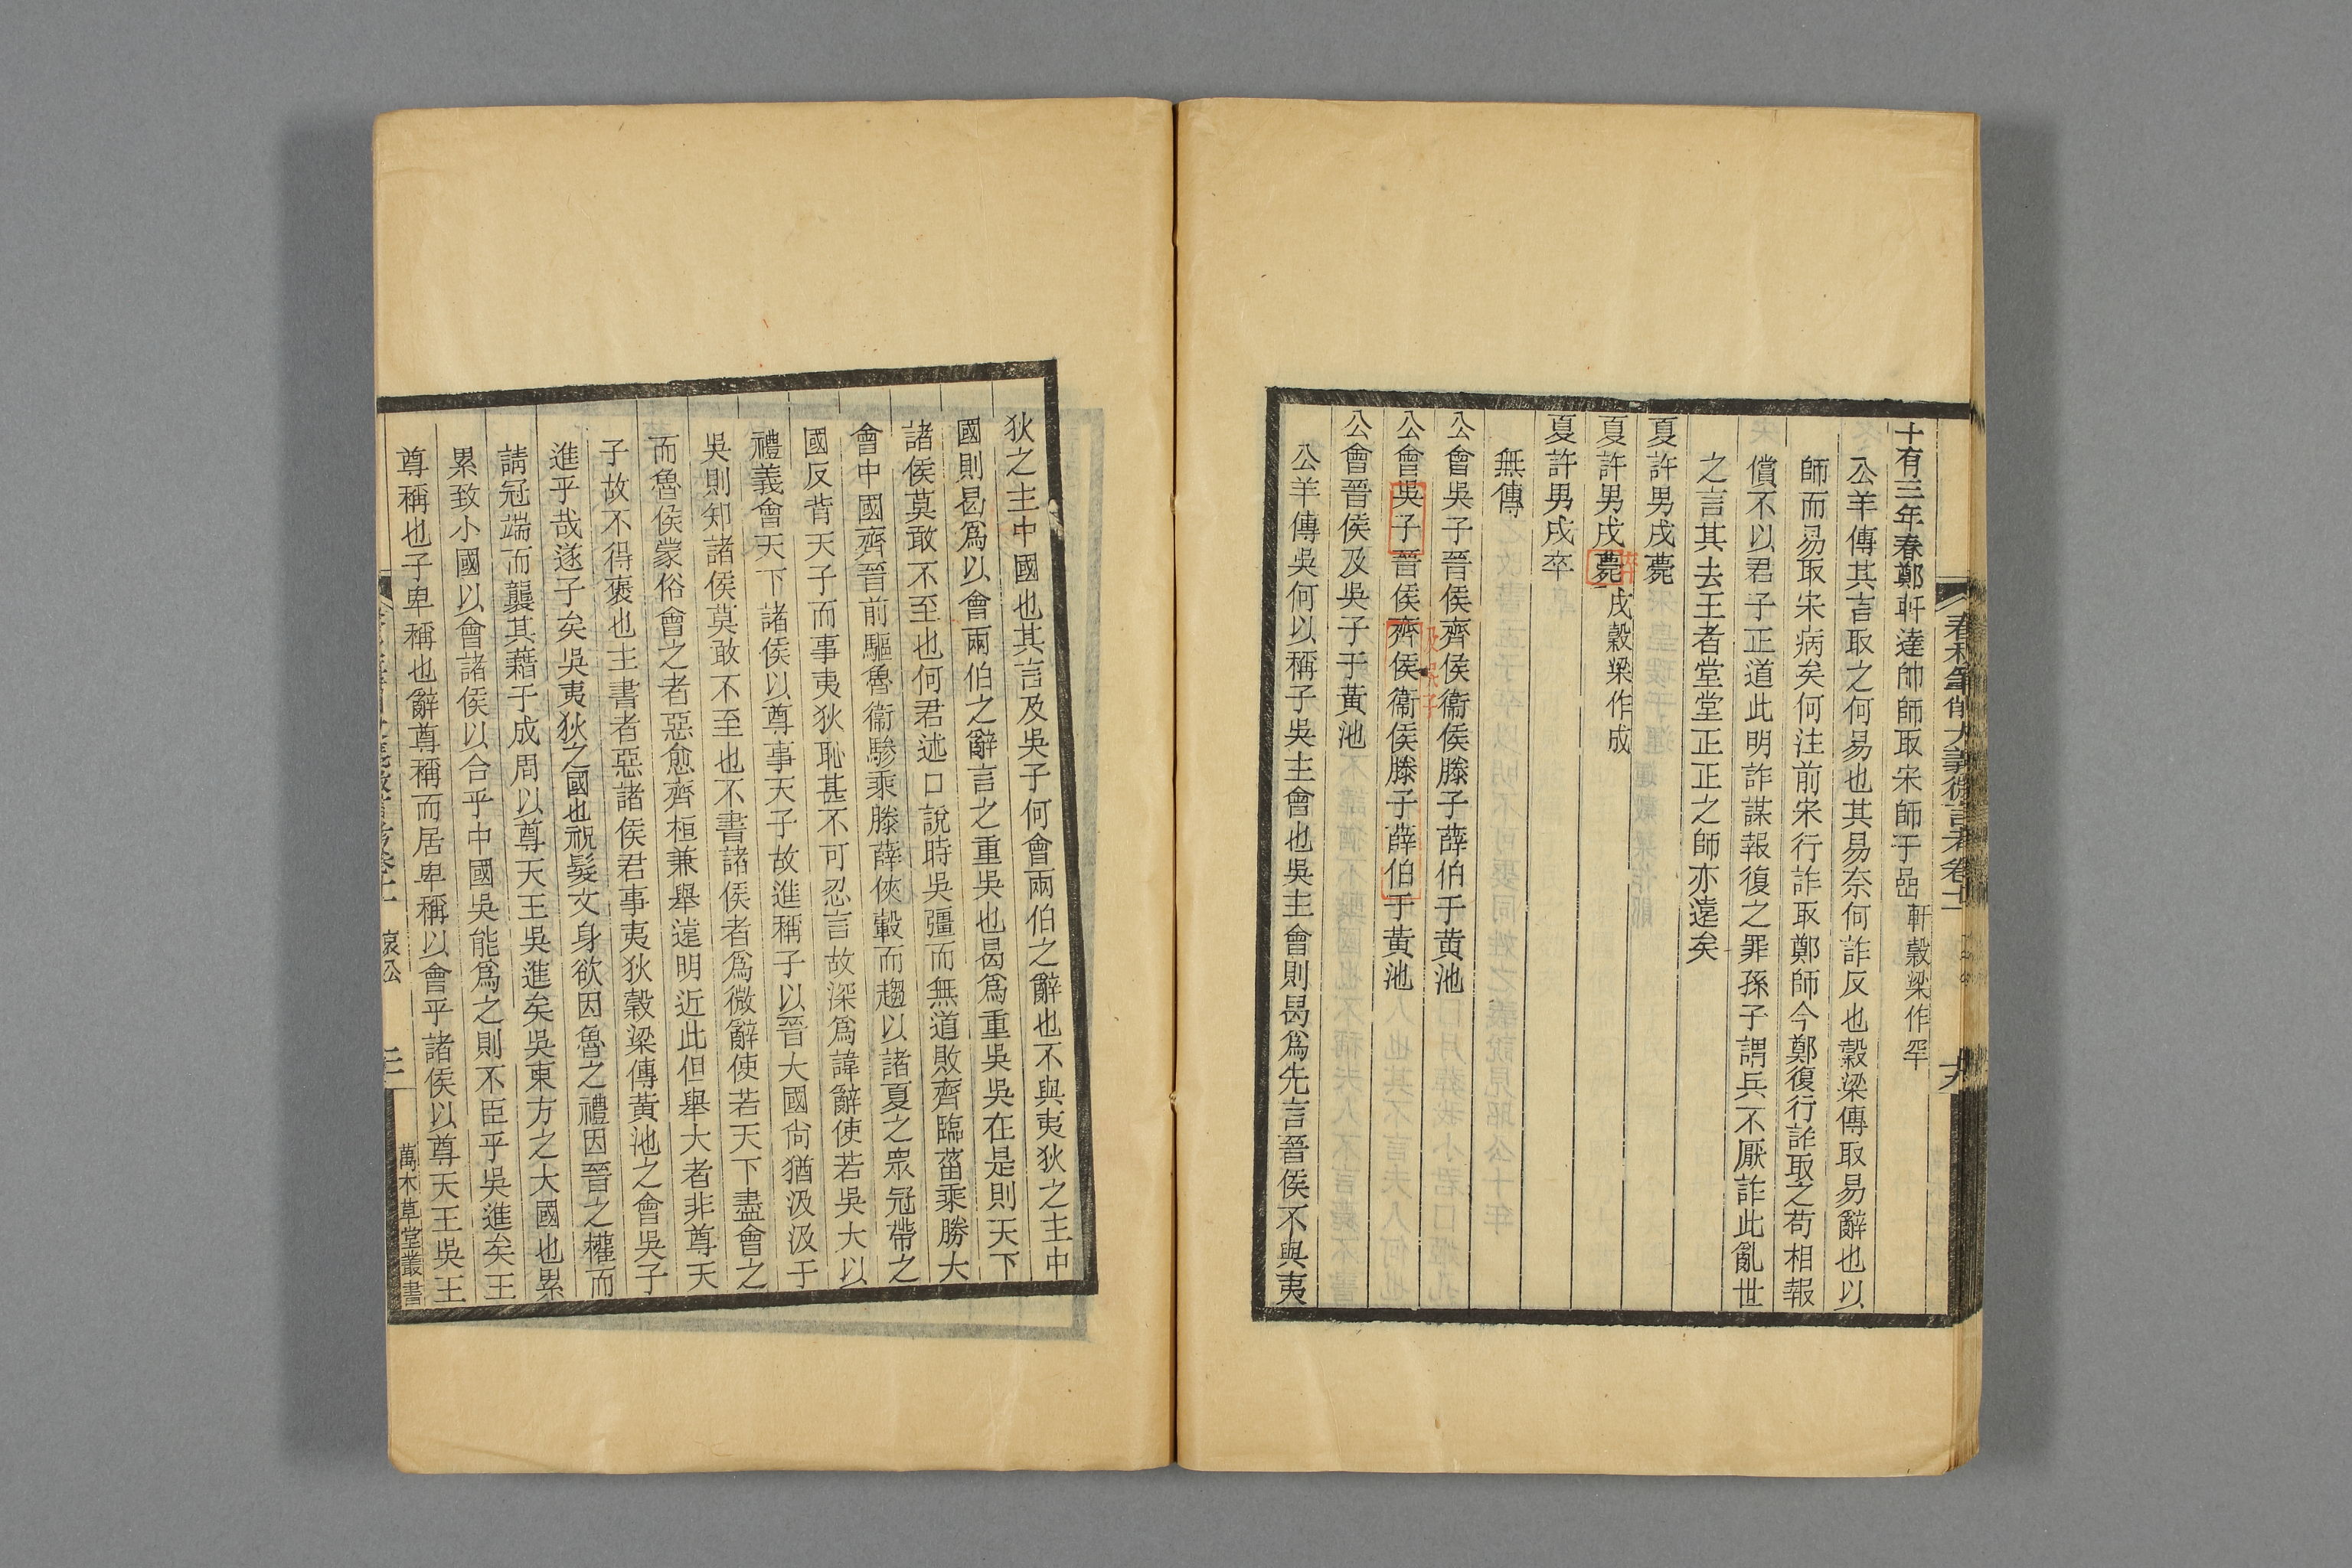 春秋筆削大義微言考卷十一
十有三年春鄭軒達帥師取宋師于嵒軒穀梁作罕
公羊傳其言取之何易也其易奈何詐反也穀梁傳取易辭也以
師而易取宋病矣何注前宋行詐取鄭師今鄭復行詐取之苟相報
償不以君子正道此明詐謀報復之罪孫子謂兵不厭詐此亂世
之言其去王者堂堂正正之師亦遠矣
夏許男戌薨
夏許男戌薨戌穀梁作成
卒
夏許男戌卒
無傳
公會吳子晉侯齊侯衞侯滕子薛伯于黃池
及吳子
公會吳子晉侯齊侯衞侯滕子薛伯于黃池
公會晉侯及吳子于黃池
公羊傳吳何以稱子吳主會也吳主會則曷爲先言晉侯不與夷
狄之主中國也其言及吳子何會兩伯之辭也不與夷狄之主中
國則曷爲以會兩伯之辭言之重吳也曷爲重吳吳在是則天下
諸侯莫敢不至也何君述口說時吳彊而無道敗齊臨菑乘勝大
會中國齊晉前驅魯衞驂乘滕薛俠轂而趨以諸夏之眾冠帶之
國反背天子而事夷狄恥甚不可忍言故深爲諱辭使若吳大以
禮義會天下諸侯以尊事天子故進稱子以晉大國尙猶汲汲于
吳則知諸侯莫敢不至也不書諸侯者爲微辭使若天下盡會之
而魯侯蒙俗會之者惡愈齊桓兼舉遠明近此但舉大者非尊天
子故不得褒也主書者惡諸侯君事夷狄穀梁傳黃池之會吳子
進乎哉遂子矣吳夷狄之國也祝髮文身欲因魯之禮因晉之權而
請冠端而襲其藉于成周以尊天王吳進矣吳東方之大國也累
累致小國以會諸侯以合乎中國吳能爲之則不臣乎吳進矣王
尊稱也子卑稱也辭尊稱而居卑稱以會乎諸侯以尊天王吳王
哀公
萬木草堂叢書